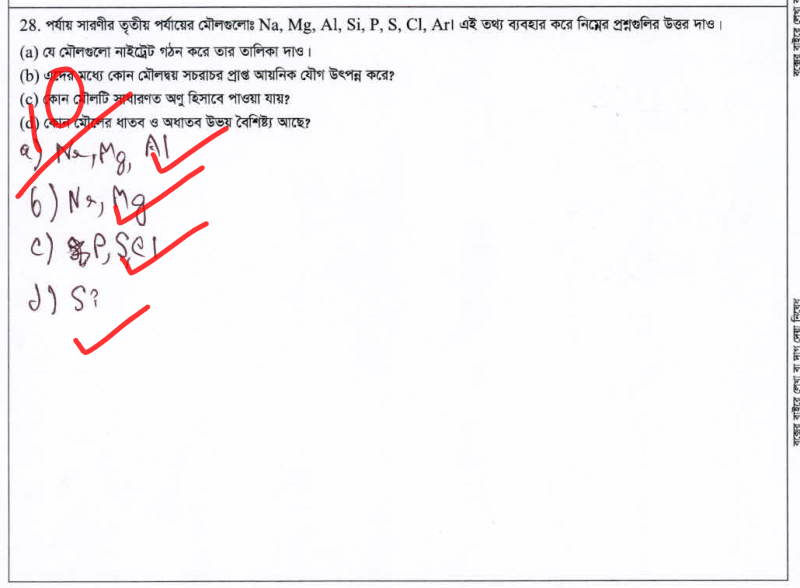 28. পর্যায় সারণীর তৃতীয় পর্যায়ের মৌলগুলোঃ Na, Mg, Al, Si, P, S, Cl, Ar। এই তথ্য ব্যবহার করে নিম্নের প্রশ্নগুলির উত্তর দাও।
(a) যে মৌলগুলো নাইট্রেট গঠন করে তার তালিকা দাও।
(b) এদের মধ্যে কোন মৌলদ্বয় সচরাচর প্রাপ্ত আয়নিক যৌগ উৎপন্ন করে?
(c) কোন মৌলটি সাধারণত অণু হিসাবে পাওয়া যায়?
(d) কোন মৌলের ধাতব ও অধাতব উভয় বৈশিষ্ট্য আছে?
10
a) Na, Mg, Al
b) Na, Mg
c) P, S, Cl
d) Si